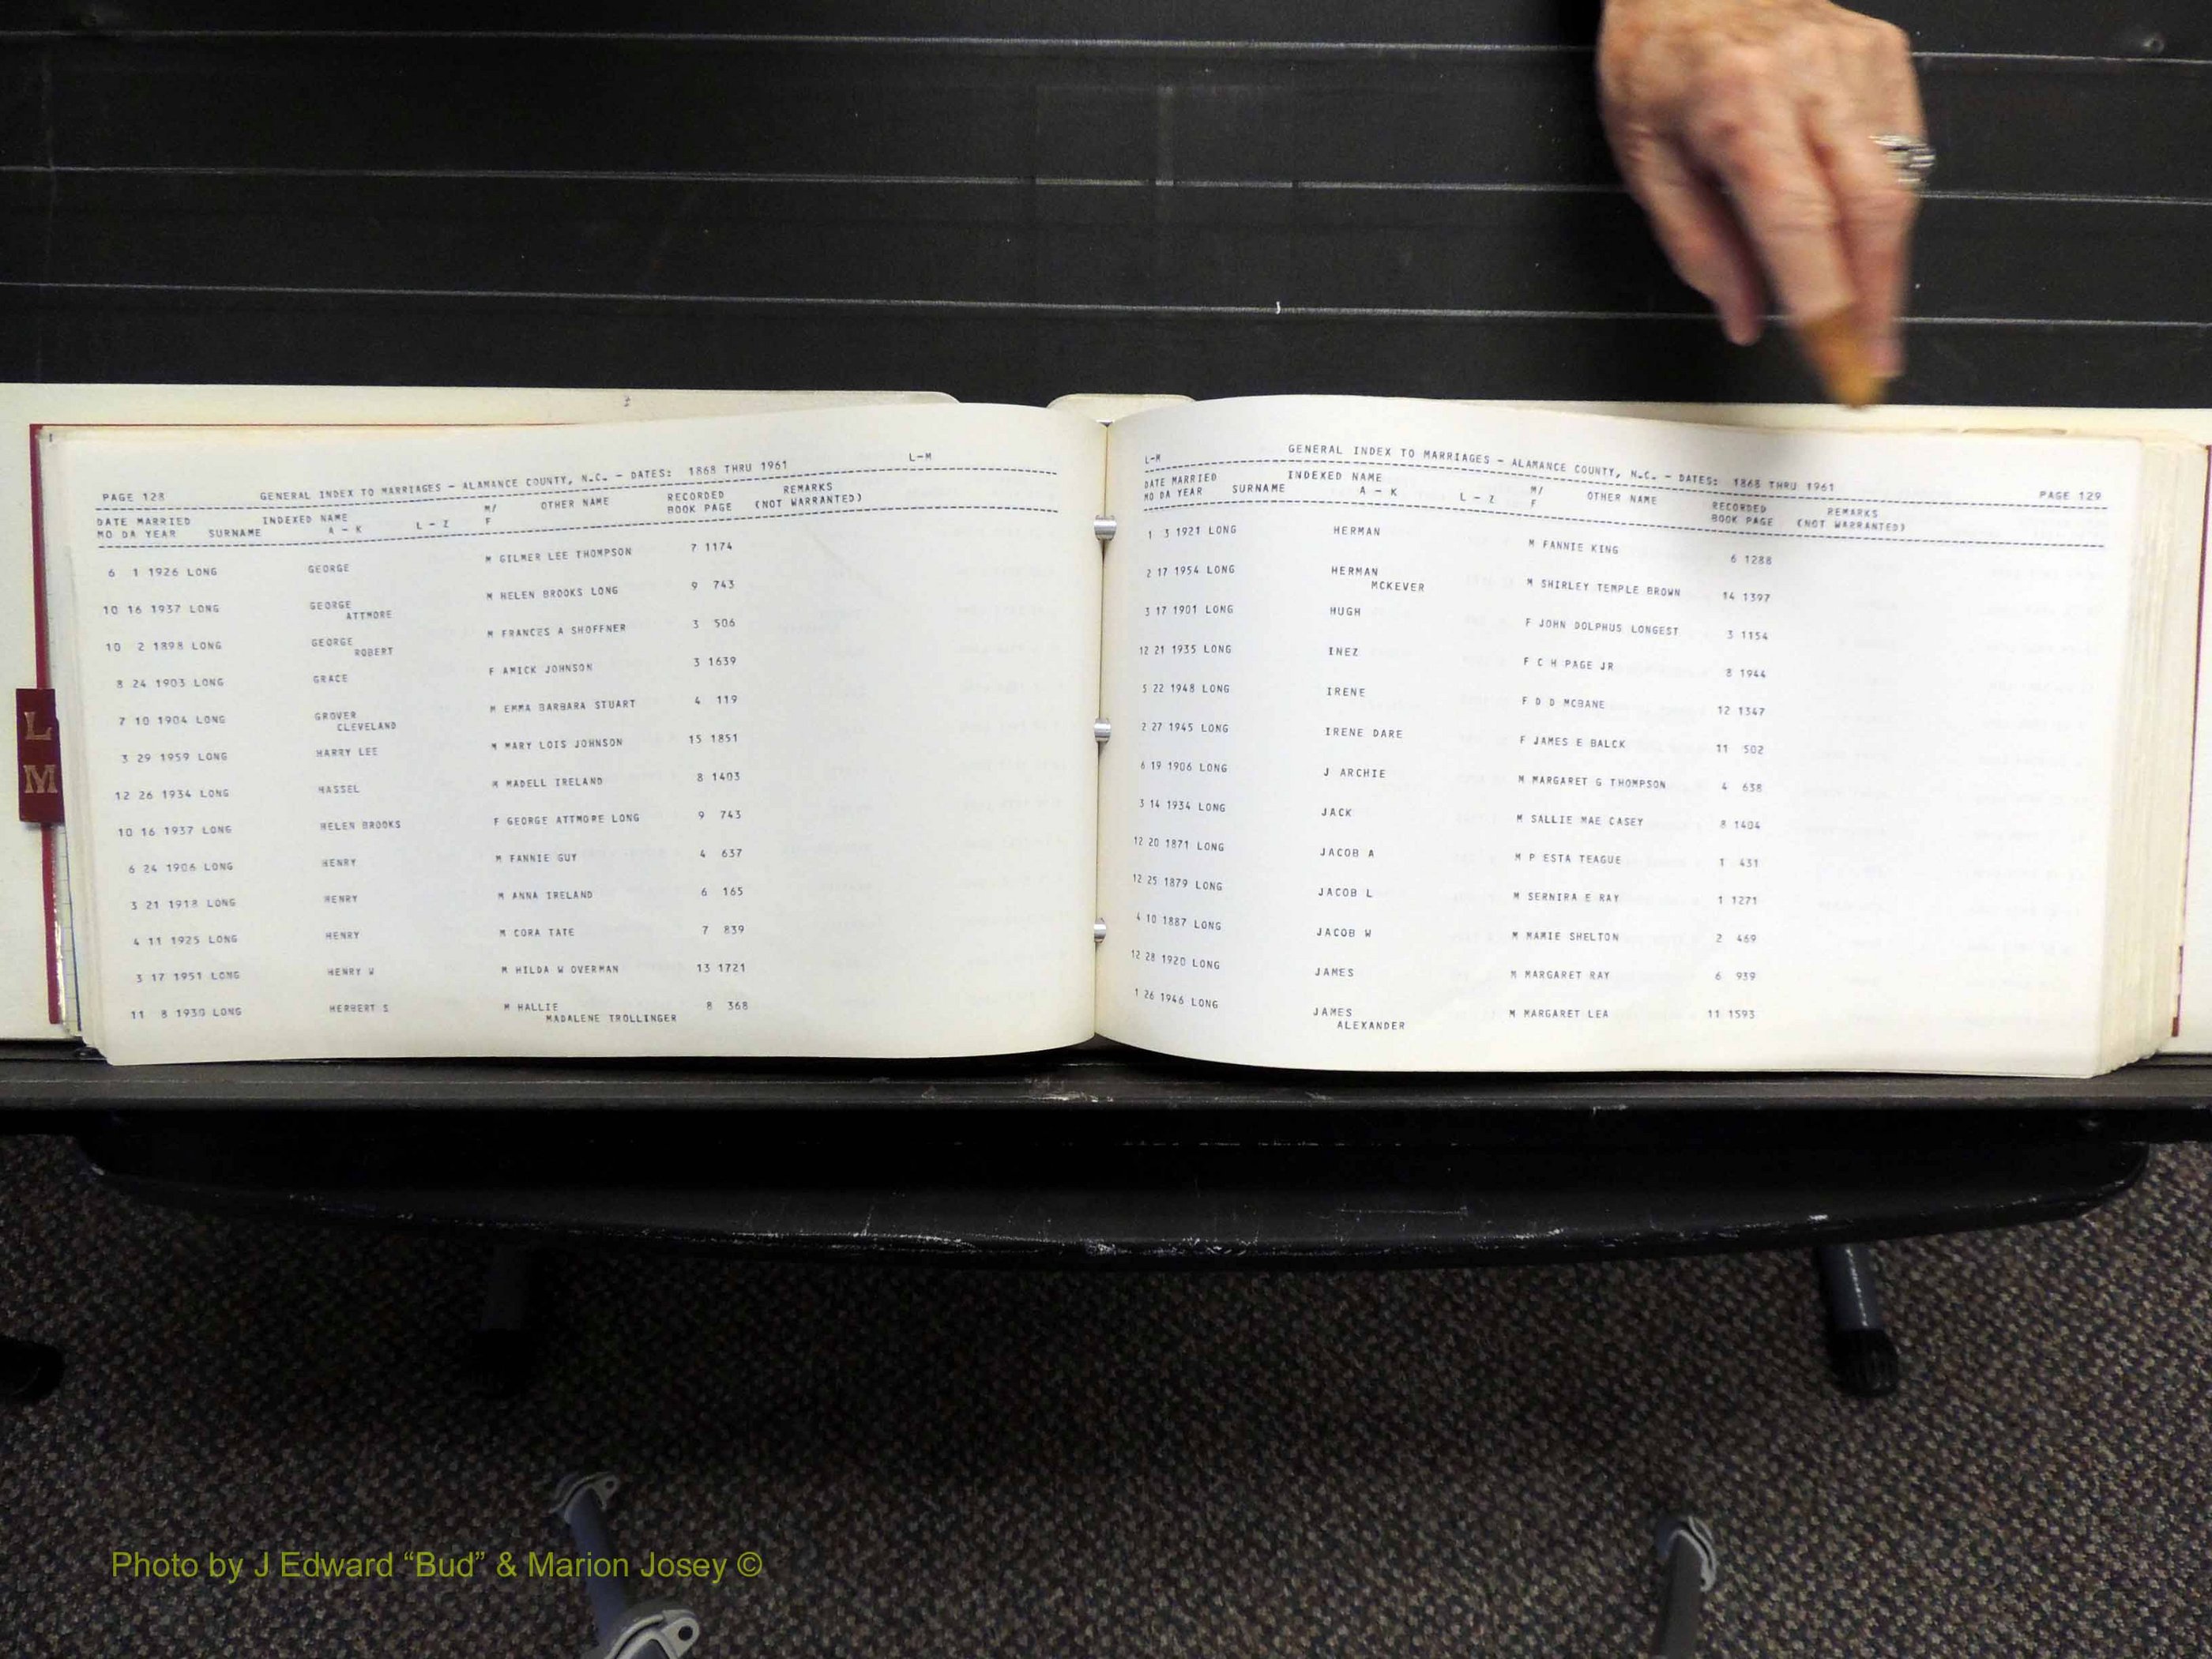 L
M
L-M
PAGE 128 GENERAL INDEX TO MARRIAGES - ALAMANCE COUNTY, N.C. - DATES: 1868 THRU 1961
DATE MARRIED INDEXED NAME M/ OTHER NAME RECORDED REMARKS
MO DA YEAR SURNAME A - K L - Z F BOOK PAGE (NOT WARRANTED)
6 1 1926 LONG GEORGE M GILMER LEE THOMPSON 7 1174
10 16 1937 LONG GEORGE M HELEN BROOKS LONG 9 743
ATTMORE
10 2 1898 LONG GEORGE M FRANCES A SHOFFNER 3 506
ROBERT
8 24 1903 LONG GRACE F AMICK JOHNSON 3 1639
7 10 1904 LONG GROVER M EMMA BARBARA STUART 4 119
CLEVELAND
3 29 1959 LONG HARRY LEE M MARY LOIS JOHNSON 15 1851
12 26 1934 LONG HASSEL M MADELL IRELAND 8 1403
10 16 1937 LONG HELEN BROOKS F GEORGE ATTMORE LONG 9 743
6 24 1906 LONG HENRY M FANNIE GUY 4 637
3 21 1918 LONG HENRY M ANNA IRELAND 6 165
4 11 1925 LONG HENRY M CORA TATE 7 839
3 17 1951 LONG HENRY W M HILDA W OVERMAN 13 1721
11 8 1930 LONG HERBERT S M HALLIE 8 368
MADALENE TROLLINGER
L-M GENERAL INDEX TO MARRIAGES - ALAMANCE COUNTY, N.C. - DATES: 1868 THRU 1961 PAGE 129
DATE MARRIED INDEXED NAME M/ OTHER NAME RECORDED REMARKS
MO DA YEAR SURNAME A - K L - Z F BOOK PAGE (NOT WARRANTED)
1 3 1921 LONG HERMAN M FANNIE KING 6 1288
2 17 1954 LONG HERMAN M SHIRLEY TEMPLE BROWN 14 1397
MCKEVER
3 17 1901 LONG HUGH F JOHN DOLPHUS LONGEST 3 1154
12 21 1935 LONG INEZ F C H PAGE JR 8 1944
5 22 1948 LONG IRENE F D D MCBANE 12 1347
2 27 1945 LONG IRENE DARE F JAMES E BALCK 11 502
6 19 1906 LONG J ARCHIE M MARGARET G THOMPSON 4 638
3 14 1934 LONG JACK M SALLIE MAE CASEY 8 1404
12 20 1871 LONG JACOB A M P ESTA TEAGUE 1 431
12 25 1879 LONG JACOB L M SERNIRA E RAY 1 1271
4 10 1887 LONG JACOB W M MAMIE SHELTON 2 469
12 28 1920 LONG JAMES M MARGARET RAY 6 939
1 26 1946 LONG JAMES M MARGARET LEA 11 1593
ALEXANDER
Photo by J Edward “Bud” & Marion Josey ©